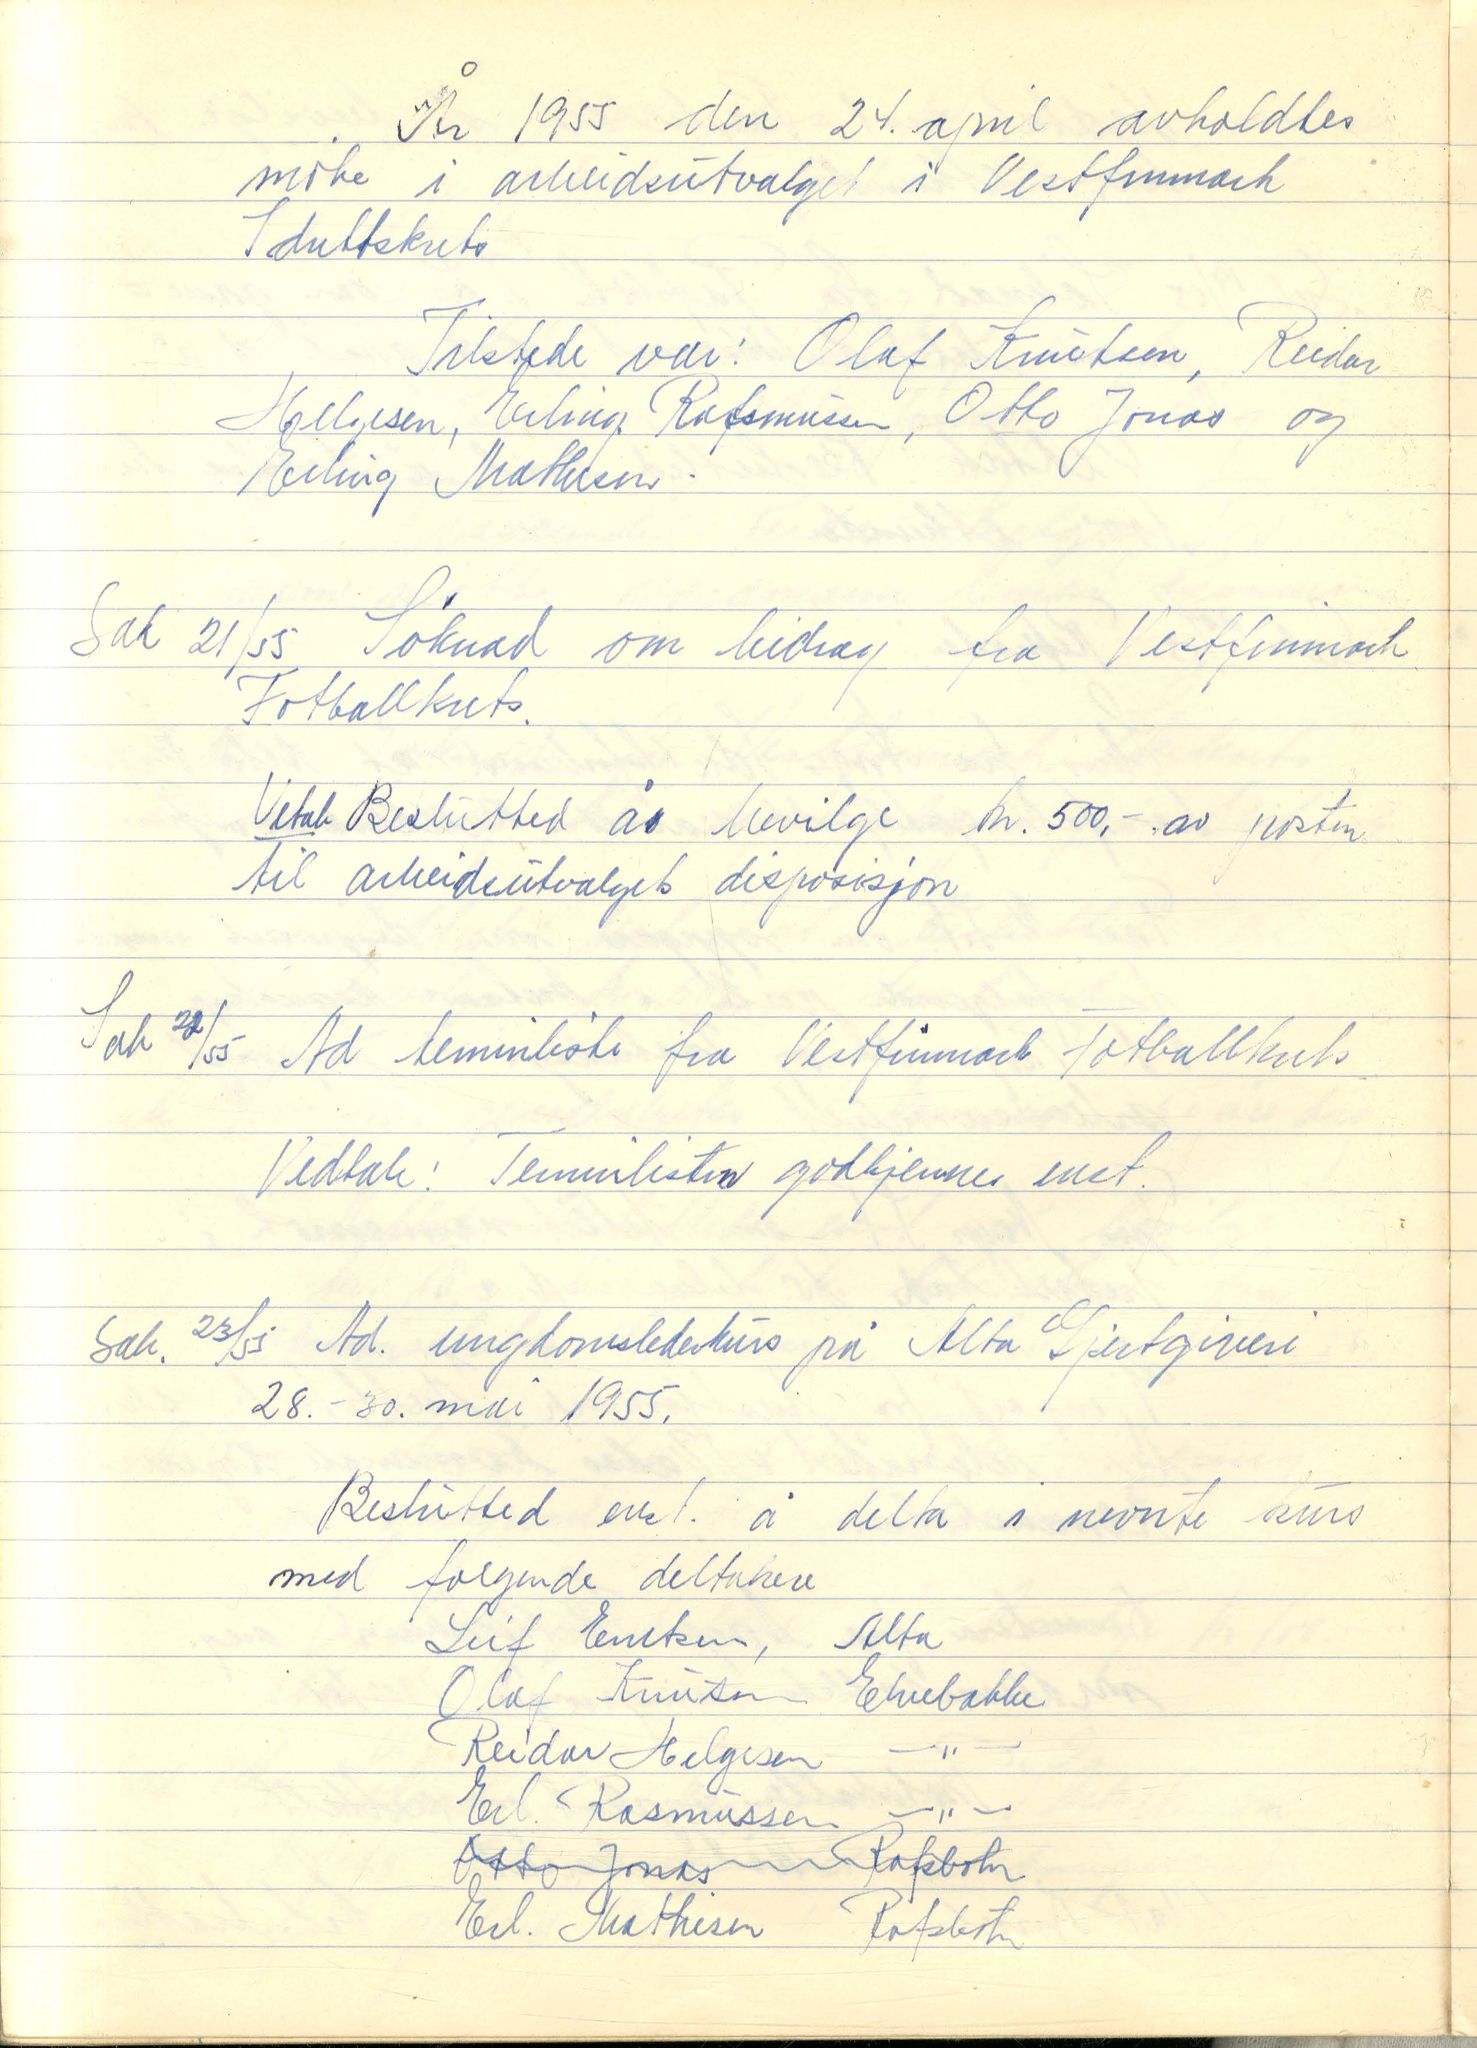 År 1955 den 24. april avholdtes
møte i arbeidsutvalget i Vestfinnmark
Idrettskrets
Tilstede var: Olaf Knutsen, Reidar
Helgesen, Erling Rafsmussen, Otto Jonas og
Erling Mathisen.
Sak 21/55 Söknad om bidrag fra Vestfinnmark
Fotballkrets.
Vetak Beslutted å bevilge kr. 500,- av posten
til arbeidsutvalgets disposisjon
Sak 22/55 Ad terminliste fra Vestfinnmark Fotballkrets
Vedtak: Terminlisten godkjennes enst.
Sak. 23/55 Ad. ungdomslederkurs på Alta Gjestgiveri
28.-30. mai 1955.
Beslutted enst. å delta i nevnte kurs
med følgende deltakere
Leif Eriksen, Alta
Olaf Knutsen Elvebakke
Reidar Helgesen —"—
Erl. Rasmussen —"—
Otto Jonas Rafsbotn
Erl. Mathisen Rafsbotn